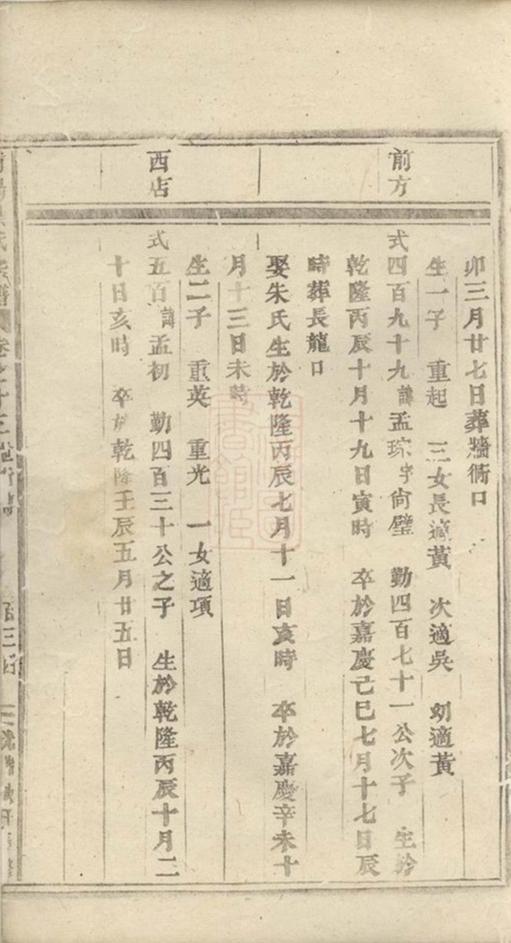 卯三月廿七日葬牆衕口
生一子　重起　三女長適黃　次適吳　幼適黃
前方
式四百九十九諱孟琮字尙璧　勤四百七十一公次子　生於
乾隆丙辰十月十九日寅時　卒於嘉慶己巳七月十七日辰
時葬長龍口
娶朱氏生於乾隆丙辰七月十一日亥時　卒於嘉慶辛未十
月十三日未時
生二子　重英　重光　一女適項
西店
式五百諱孟初　勤四百三十公之子　生於乾隆丙辰十月二
十日亥時　卒於乾隆壬辰五月廿五日